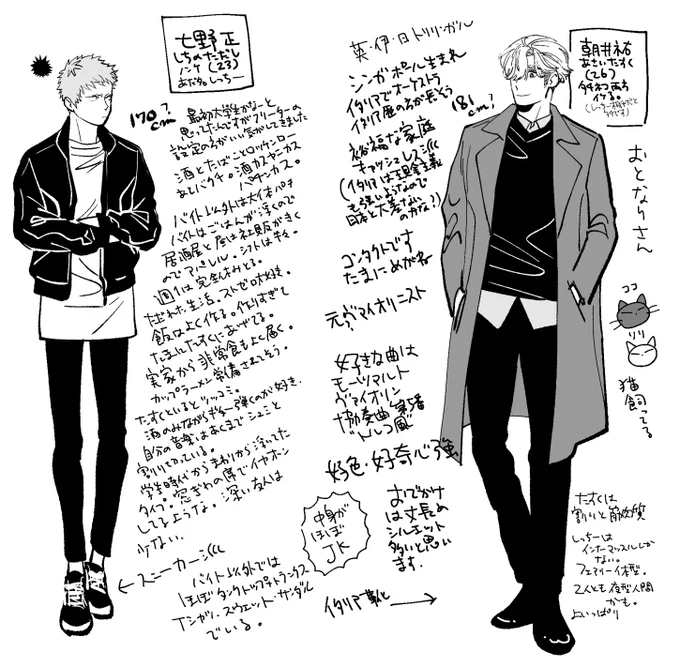 七野 正
しちのただし
ノンケ (23)
あだ名。しっちー
170?
cm
最初大学生かなーと
思ってたんですがフリーターの
設定の方がいい気がしてきました
酒とたばことロックンロー
あとバクチ。酒カスヤニカス
パチンカス。
バイト以外は大体パチ
バイトはごはんが浮くので
居酒屋と 店は社販がきく
のでアパレル。シフトは半々。
週1は完全休みとる。
ただれた生活。ストゼロ大好き。
飯はよく作る。作りすぎて
たまにたすくにあげてる。
実家から非常食もよく届く。
カップラーメン常備させてそう。
たすくといるとツッコミ。
酒のみながらギター弾くのが好き。
自分の音楽はあくまでシュミと
割り切っている。
学生時代からまわりから浮いてた
タイプ。窓ぎわの席でイヤホン
してるような。深い友人は
少ない。
←スニーカー派
バイト以外では
ほぼタンクトップ+トランクス
Tシャツ・スウェット・サンダル
でいる。
英・伊・日トリリンガル
シンガポール生まれ
イタリアでオーケストラ
イタリア歴の方が長そう
裕福な家庭
キャッシュレス派
(イタリアは現金主義
も強いようなので
日本と大差ない
のかな?)
コンタクトです
たまにめがね
元ヴァイオリニスト
好きな曲は
モーツァルト
ヴァイオリン
協奏曲第5番
"トルコ風"
好色・好奇心強
中身が
ほぼ
JK
おでかけ
は丈長め
シルエット
多いと思い
ます。
イタリア靴→
181?
cm
朝井 祐
あさい たすく
(26)
タチネコ両方
イケる。
おとなりさん
ココ
リリ
猫
飼ってる
たすくは
割りと筋肉質
しっちーは
インナーマッスルしか
ない。
フェアリー体型。
2人とも夜型人間
かも。
よいっぱり